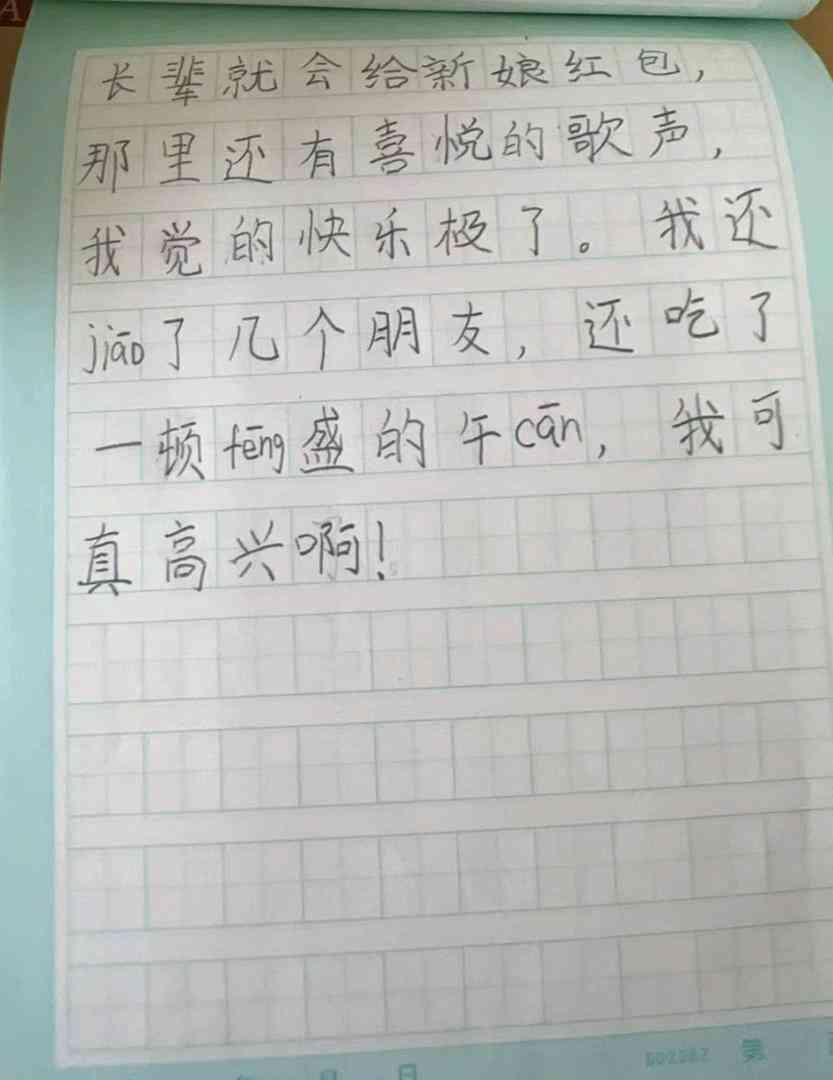 长辈就会给新娘红包,
那里还有喜悦的歌声,
我觉的快乐极了。我还
jiāo了几个朋友,还吃了
一顿fēng盛的午cān,我可
真高兴啊!
502362 第
月 日